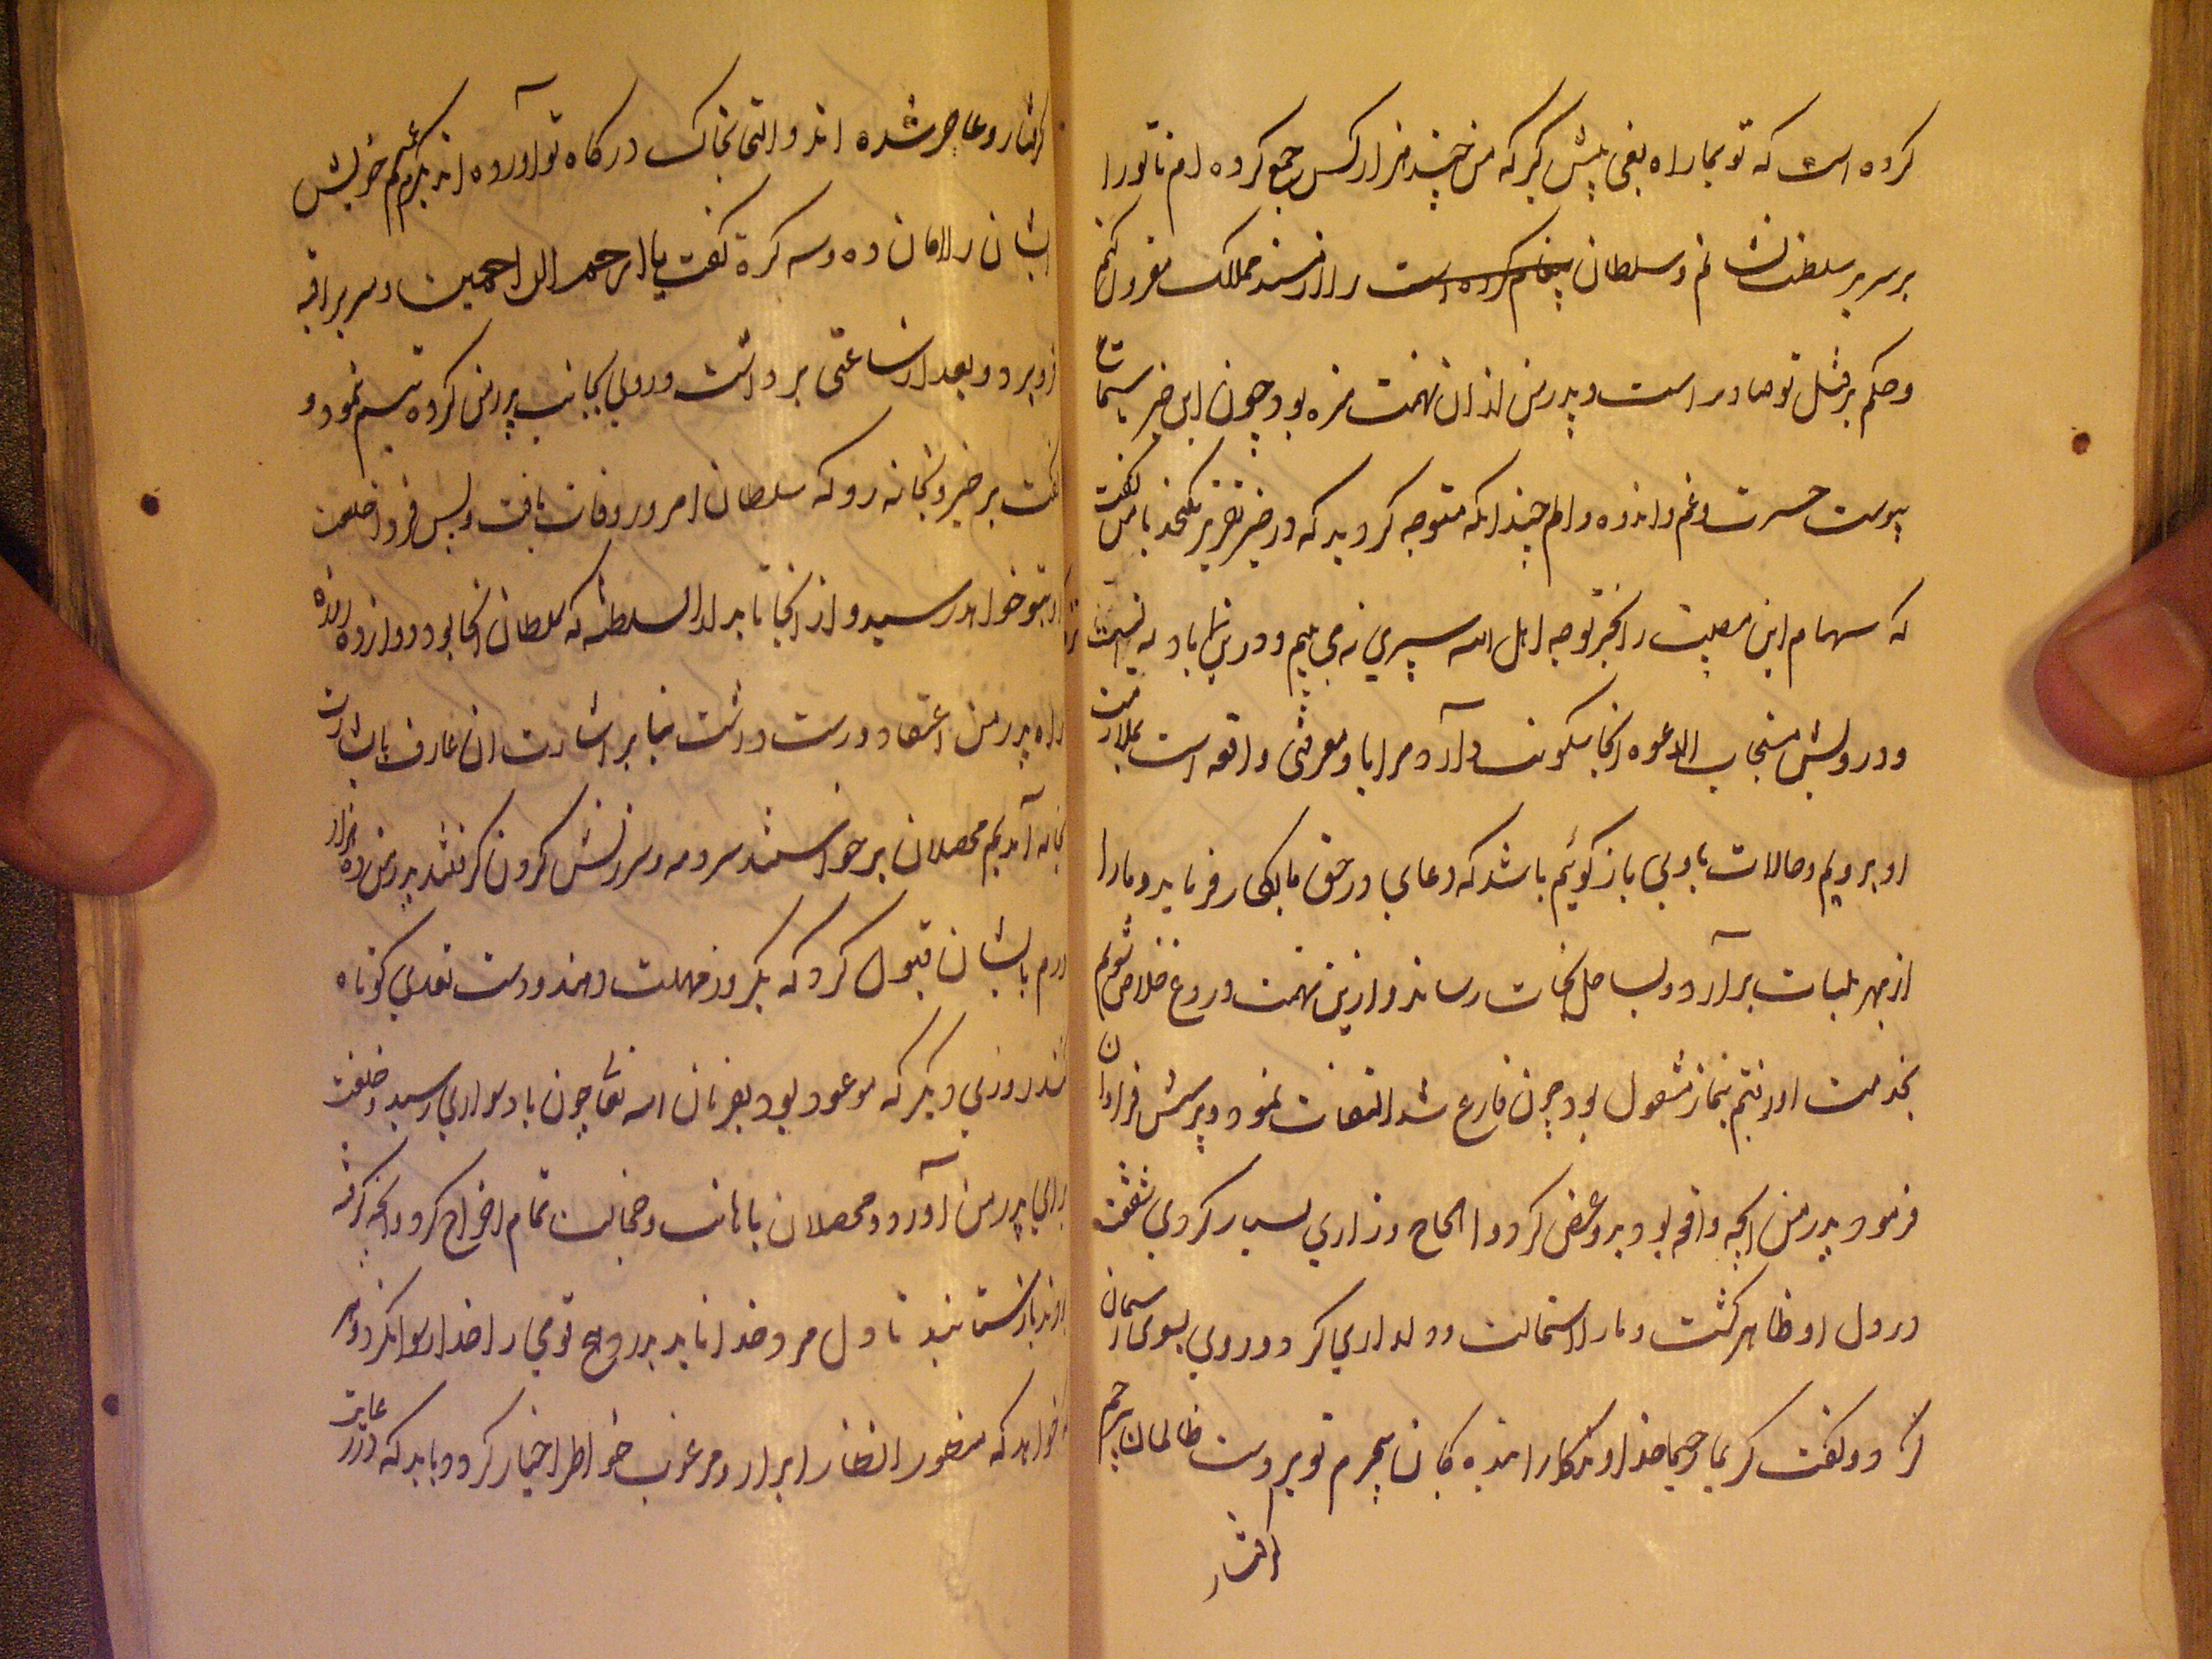 کرده است که تو بما راه بغی پیش گیر که من چند هزار کس جمع کرده ام تا تو را
بر سریر سلطنت نشانم و سلطان پیغام کرده است را از مسند مملکت معزول کنم
و حکم بر قتل تو صادر است و پدر من از ان تهمت منزه بود چون این خبر بسماع
پیوست حسرت و غم و اندوه و الم چندانکه متوجه گردید که در حیز تقریر نگنجد با من گفت
که سهام این مصیبت را بجز توجه اهل الله سپری نمی بینم و درین بادیه نیست
و درویش مستجاب الدعوه انجا سکونت دارد و مرا با او معرفتی واقعه است بملازمت
او برویم و حالات با وی باز گوئیم باشد که دعای در حق ما بکار فرماید و ما را
از بلیات برآرد و بساحل نجات رساند و ازین تهمت دروغ خلاص شویم
بخدمت او رفتیم بنماز مشغول بود چون فارغ شد التفات نمود و پرسش فراوان
فرمود و پدر من انچه واقعه بود برو عرض کرد و الحاح و زاری بسیار کرد وی شفقت
در دل او ظاهر گشت و ما را استمالت و دلداری کرد و روی بسوی اسمان
کرد و گفت کریما رحیما خداوندگارا بنده کان بیجرم تو بر دست ظالمان بیرحم
گرفتار
گرفتار و عاجز شده اند و التجا بخاک درگاه تو آورده اند بکرم عمیم خویش
ایشان را امان ده و سه کرة گفت یا ارحم الراحمین و سر بمراقبه
فرو برد و بعد از ساعتی برداشت و روی بجانب پدر من کرده تبسم نمود و
گفت برخیز و بخانه رو که سلطان امروز وفات یافت و پس فردا خلعت
او بتو خواهد رسید و از انجا تا بدار السلطنه که سلطان انجا بود دوازده روزه
راه پدر من اعتقاد درست داشت بنا بر اشارت ان عارف با بشارت
بخانه آمدیم محصلان برخواستند و سرزنش کردن گرفتند پدر من ده هزار
درم بایشان قبول کرد که یکروز مهلت دهند و دست تعدی کوتاه
کنند روزی دیگر که موعود بود بفرمان الله تعالی چون باد سواری رسید و خلعت
برای پدر من آورد و محصلان با اهانت و خجالت تمام اخراج کرد و انچه گرفته
بودند باز ستانید تا دل مرد خدا ناید بدرد هیچ قومی را خدا رسوا نکرد و
خواهد که منظور انظار ابرار و مرغوب خواطر اخیار گردد باید که در رعایت